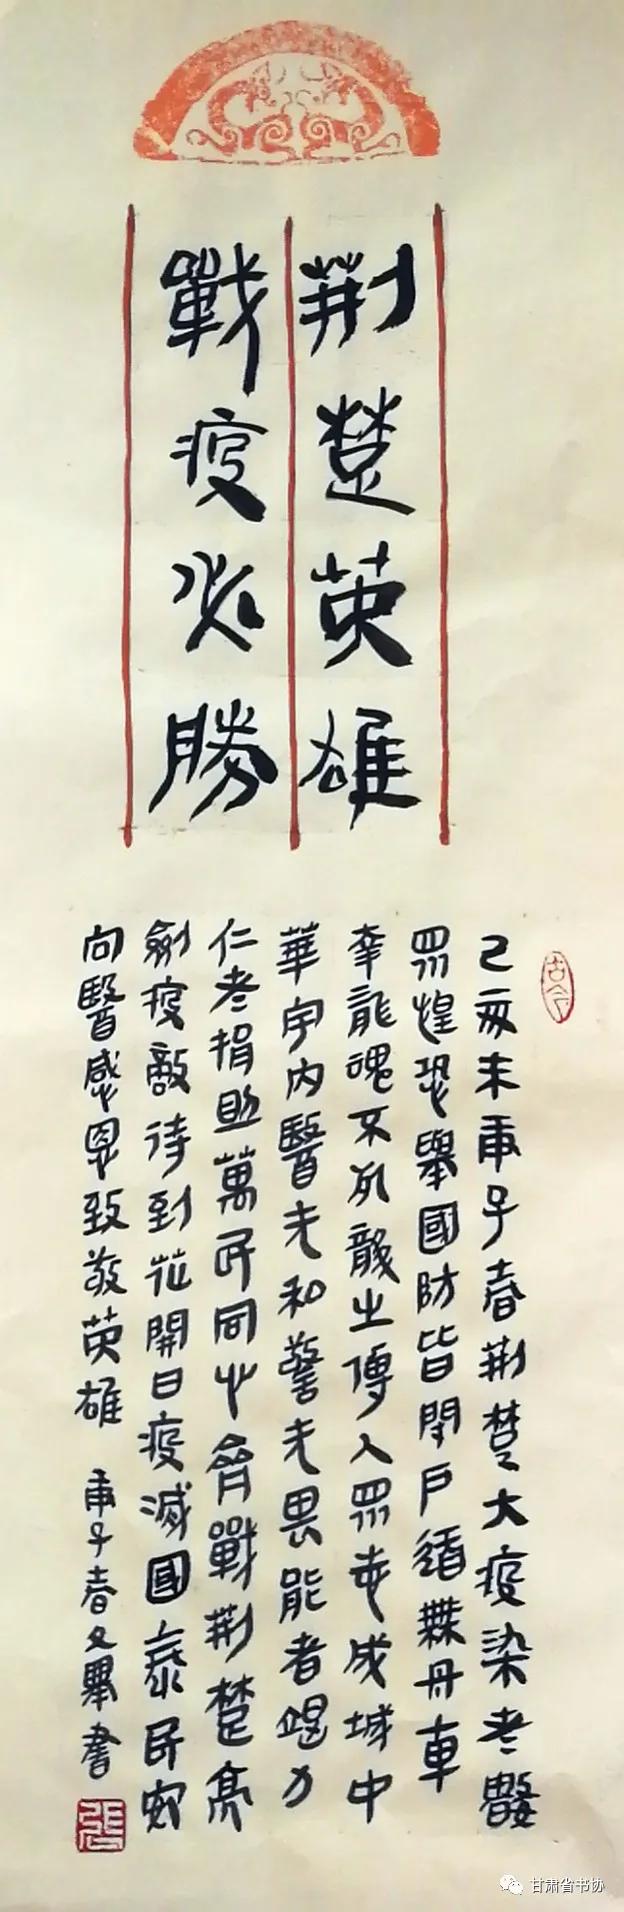 荆楚英雄
戰疫必勝
己亥末庚子春荆楚大疫染者數
眾惶恐舉國防皆閉户道無舟車
幸龍魂不龍之傳人眾志成城中
華宇内醫无私警无畏能者竭力
仁者捐助萬民同心齊戰荆楚亮
劍疫敵待到花開日疫滅國泰民安
向醫感恩致敬英雄
庚子春文舉書
甘肃省书协